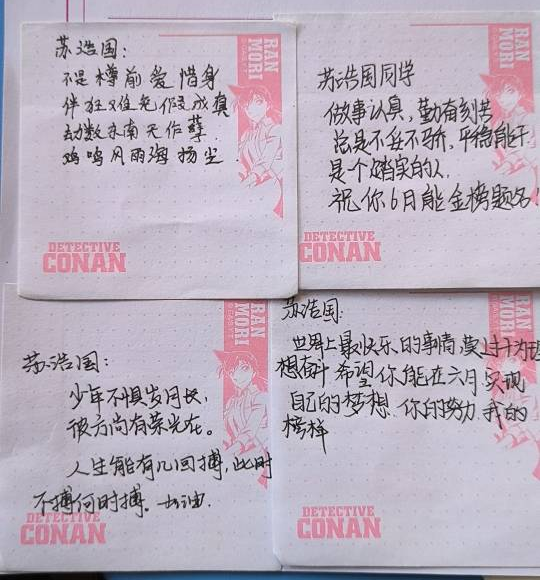 苏浩国:
不是樽前爱惜身
佯狂难免假成真
劫数东南天作孽
鸡鸣风雨海扬尘
RAN
MORI
DETECTIVE
CONAN
苏浩国同学
做事认真,勤奋刻苦
总是不妥不骄,平稳能干
是个踏实的人.
祝你6月能金榜题名!
RAN
MORI
DETECTIVE
CONAN
苏浩国:
少年不惧岁月长,
彼方尚有荣光在。
人生能有几回搏,此时
不搏何时搏。加油.
RAN
MORI
DETECTIVE
CONAN
苏浩国:
世界上最快乐的事情,莫过于为理
想奋斗 希望你能在六月实现
自己的梦想.你的努力 我的
榜样
RAN
MORI
DETECTIVE
CONAN